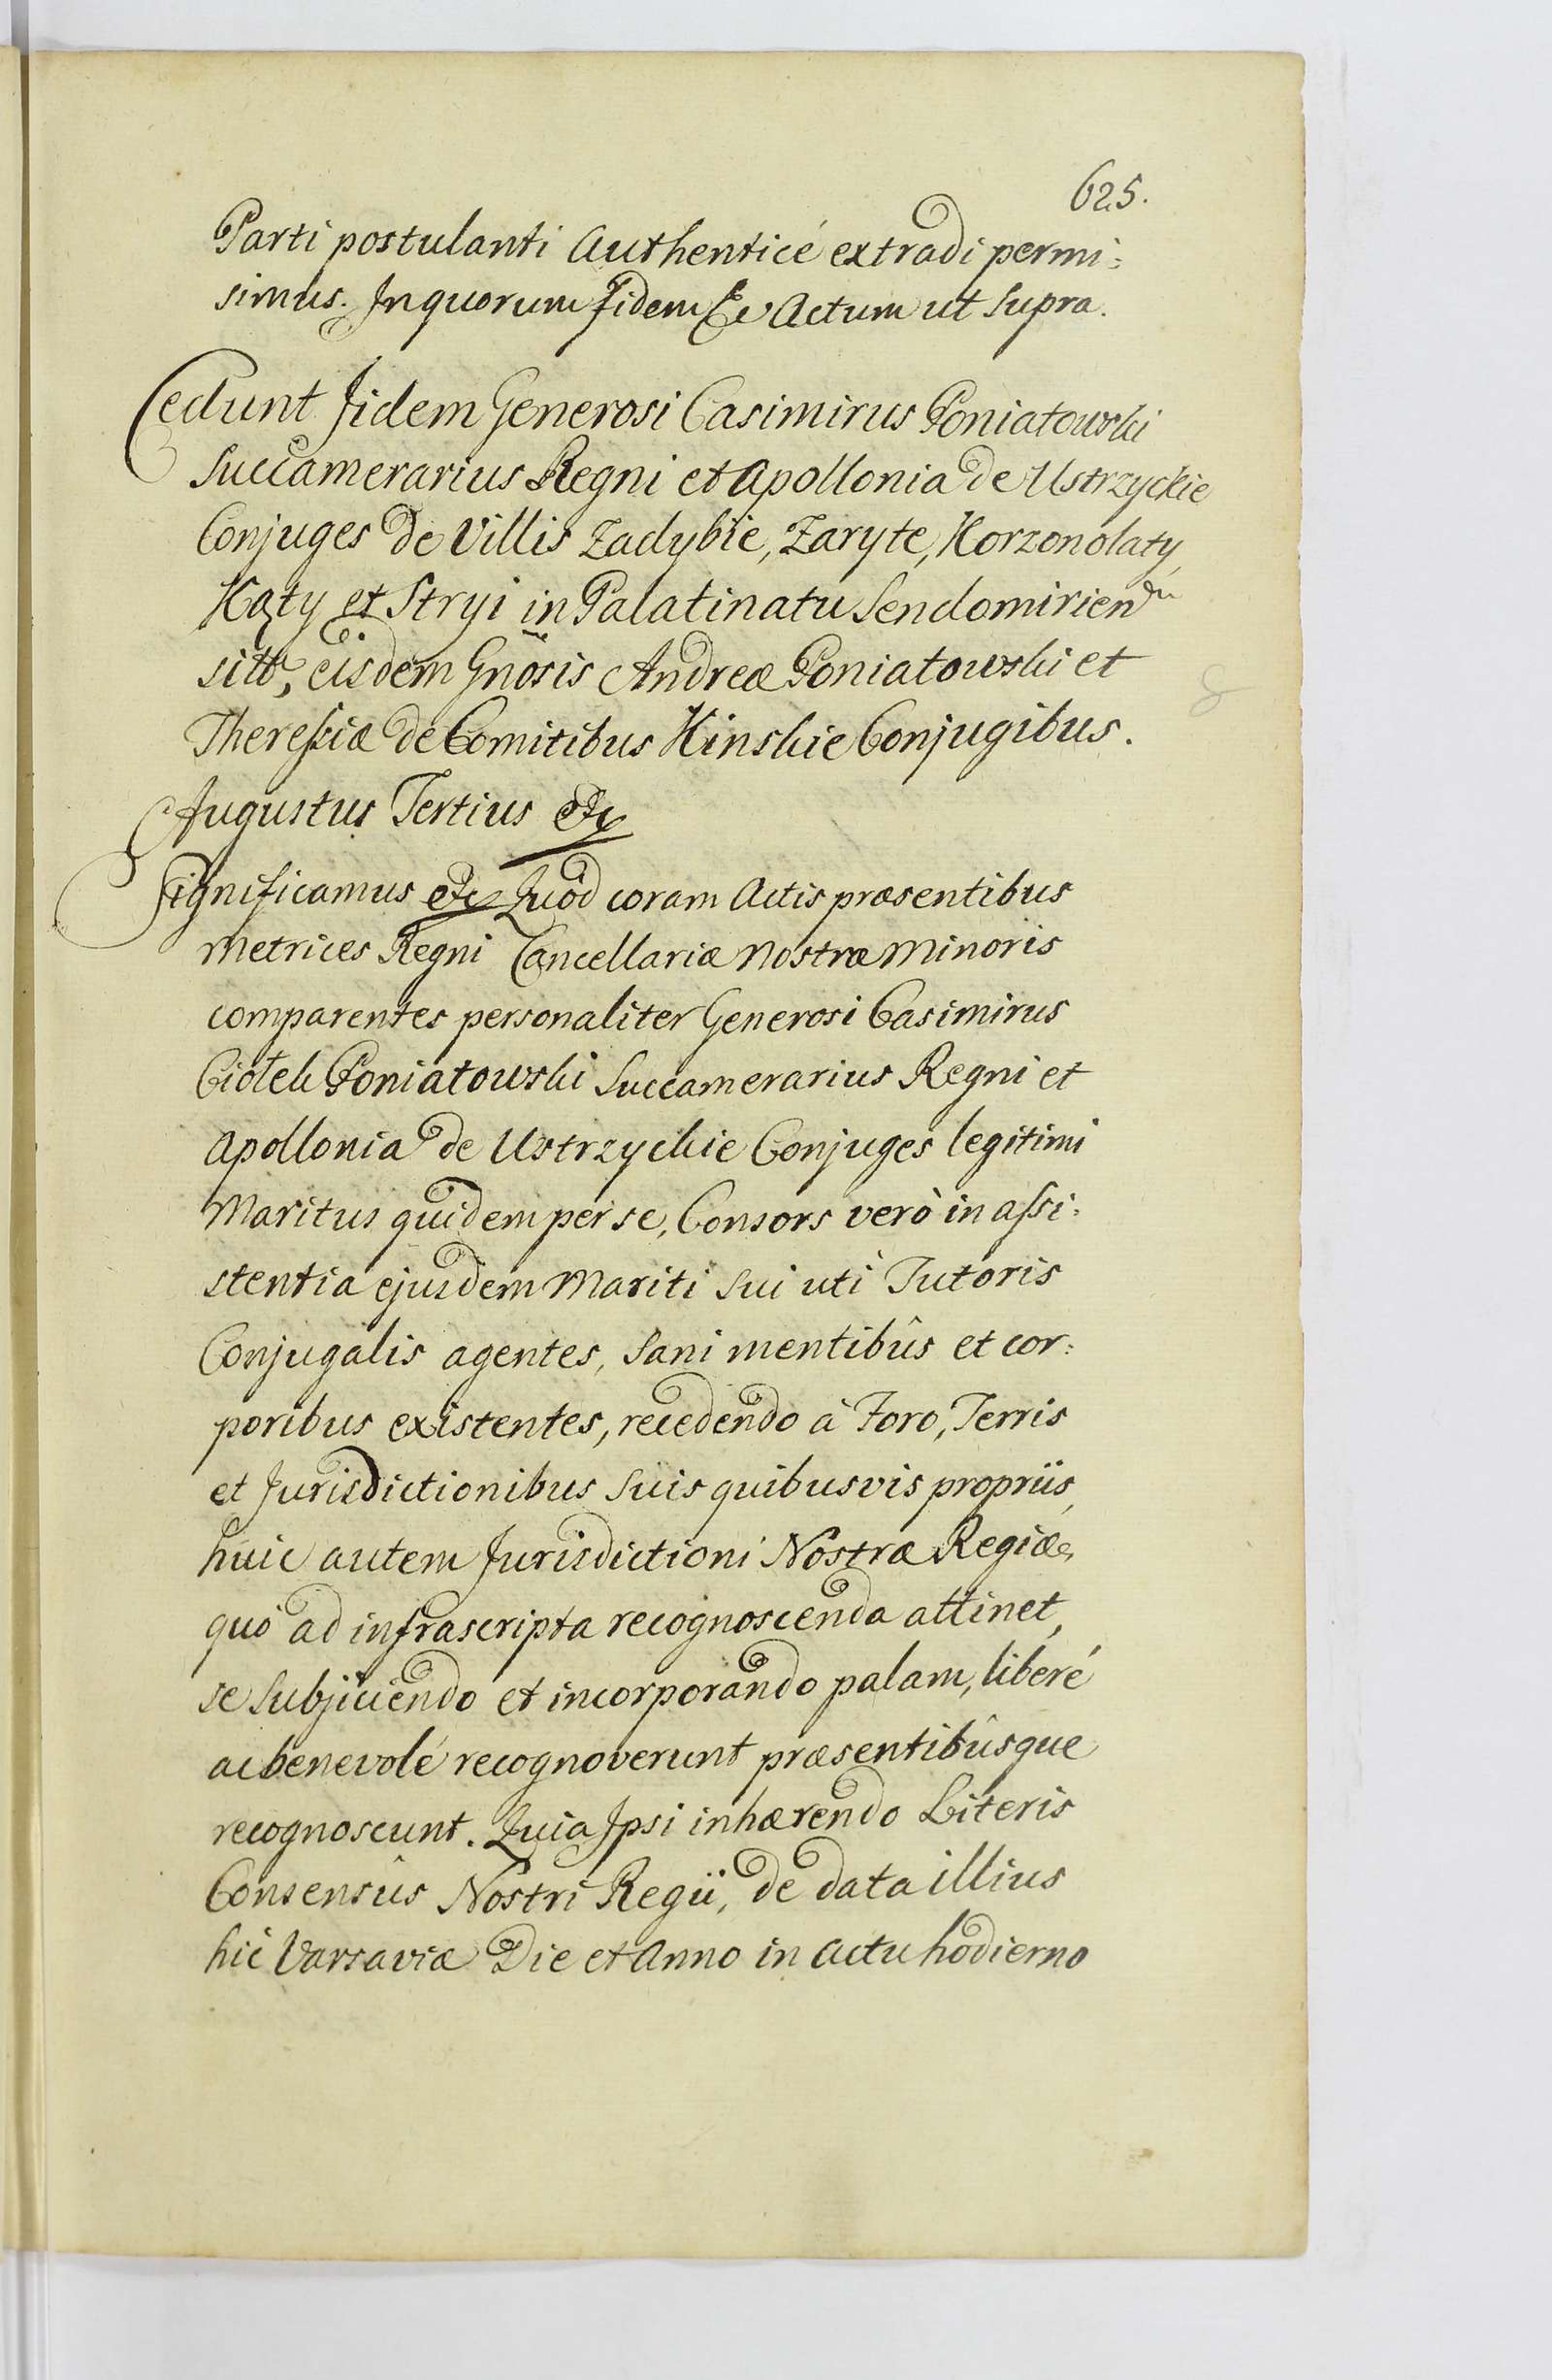 625.
Parti postulanti Authenticé extradi permi:
simus. In quorum fidem &c Actum ut supra.
Cedunt Iidem Generosi Casimirus Poniatowski
Succamerarius Regni et Apollonia de Ustrzyckie
Conjuges de Villis Zadybie, Zaryte, Korzonolaty,
Kąty et Stryi in Palatinatu Sendomirien
sitt, eisdem Gnosis Andreæ Poniatowski et
Theresiæ de Comitibus Kinskie Conjugibus.
Augustus Tertius etc
Significamus etc Quod coram Actis præsentibus
Metrices Regni Cancellariæ Nostræ Minoris
comparentes personaliter Generosi Casimirus
Ciołek Poniatowski Succamerarius Regni et
Apollonia de Ustrzyckie Conjuges legitimi
Maritus quidem per se, Consors verò in assi:
stentia ejusdem Mariti sui uti Tutoris
Conjugalis agentes, sani mentibûs et cor:
poribus existentes, recedendo à Foro, Terris
et Jurisdictionibus suis quibusvis propriis,
huic autem Jurisdictioni Nostræ Regiæ,
quò ad infrascripta recognoscenda attinet,
se subjiciendo et incorporando palam, liberé
ac benevolé recognoverunt præsentibûsque
recognoscunt. Quia Ipsi inhærendo Literis
Consensûs Nostri Regii, de data illius
hic Varsaviæ Die et Anno in actu hodierno